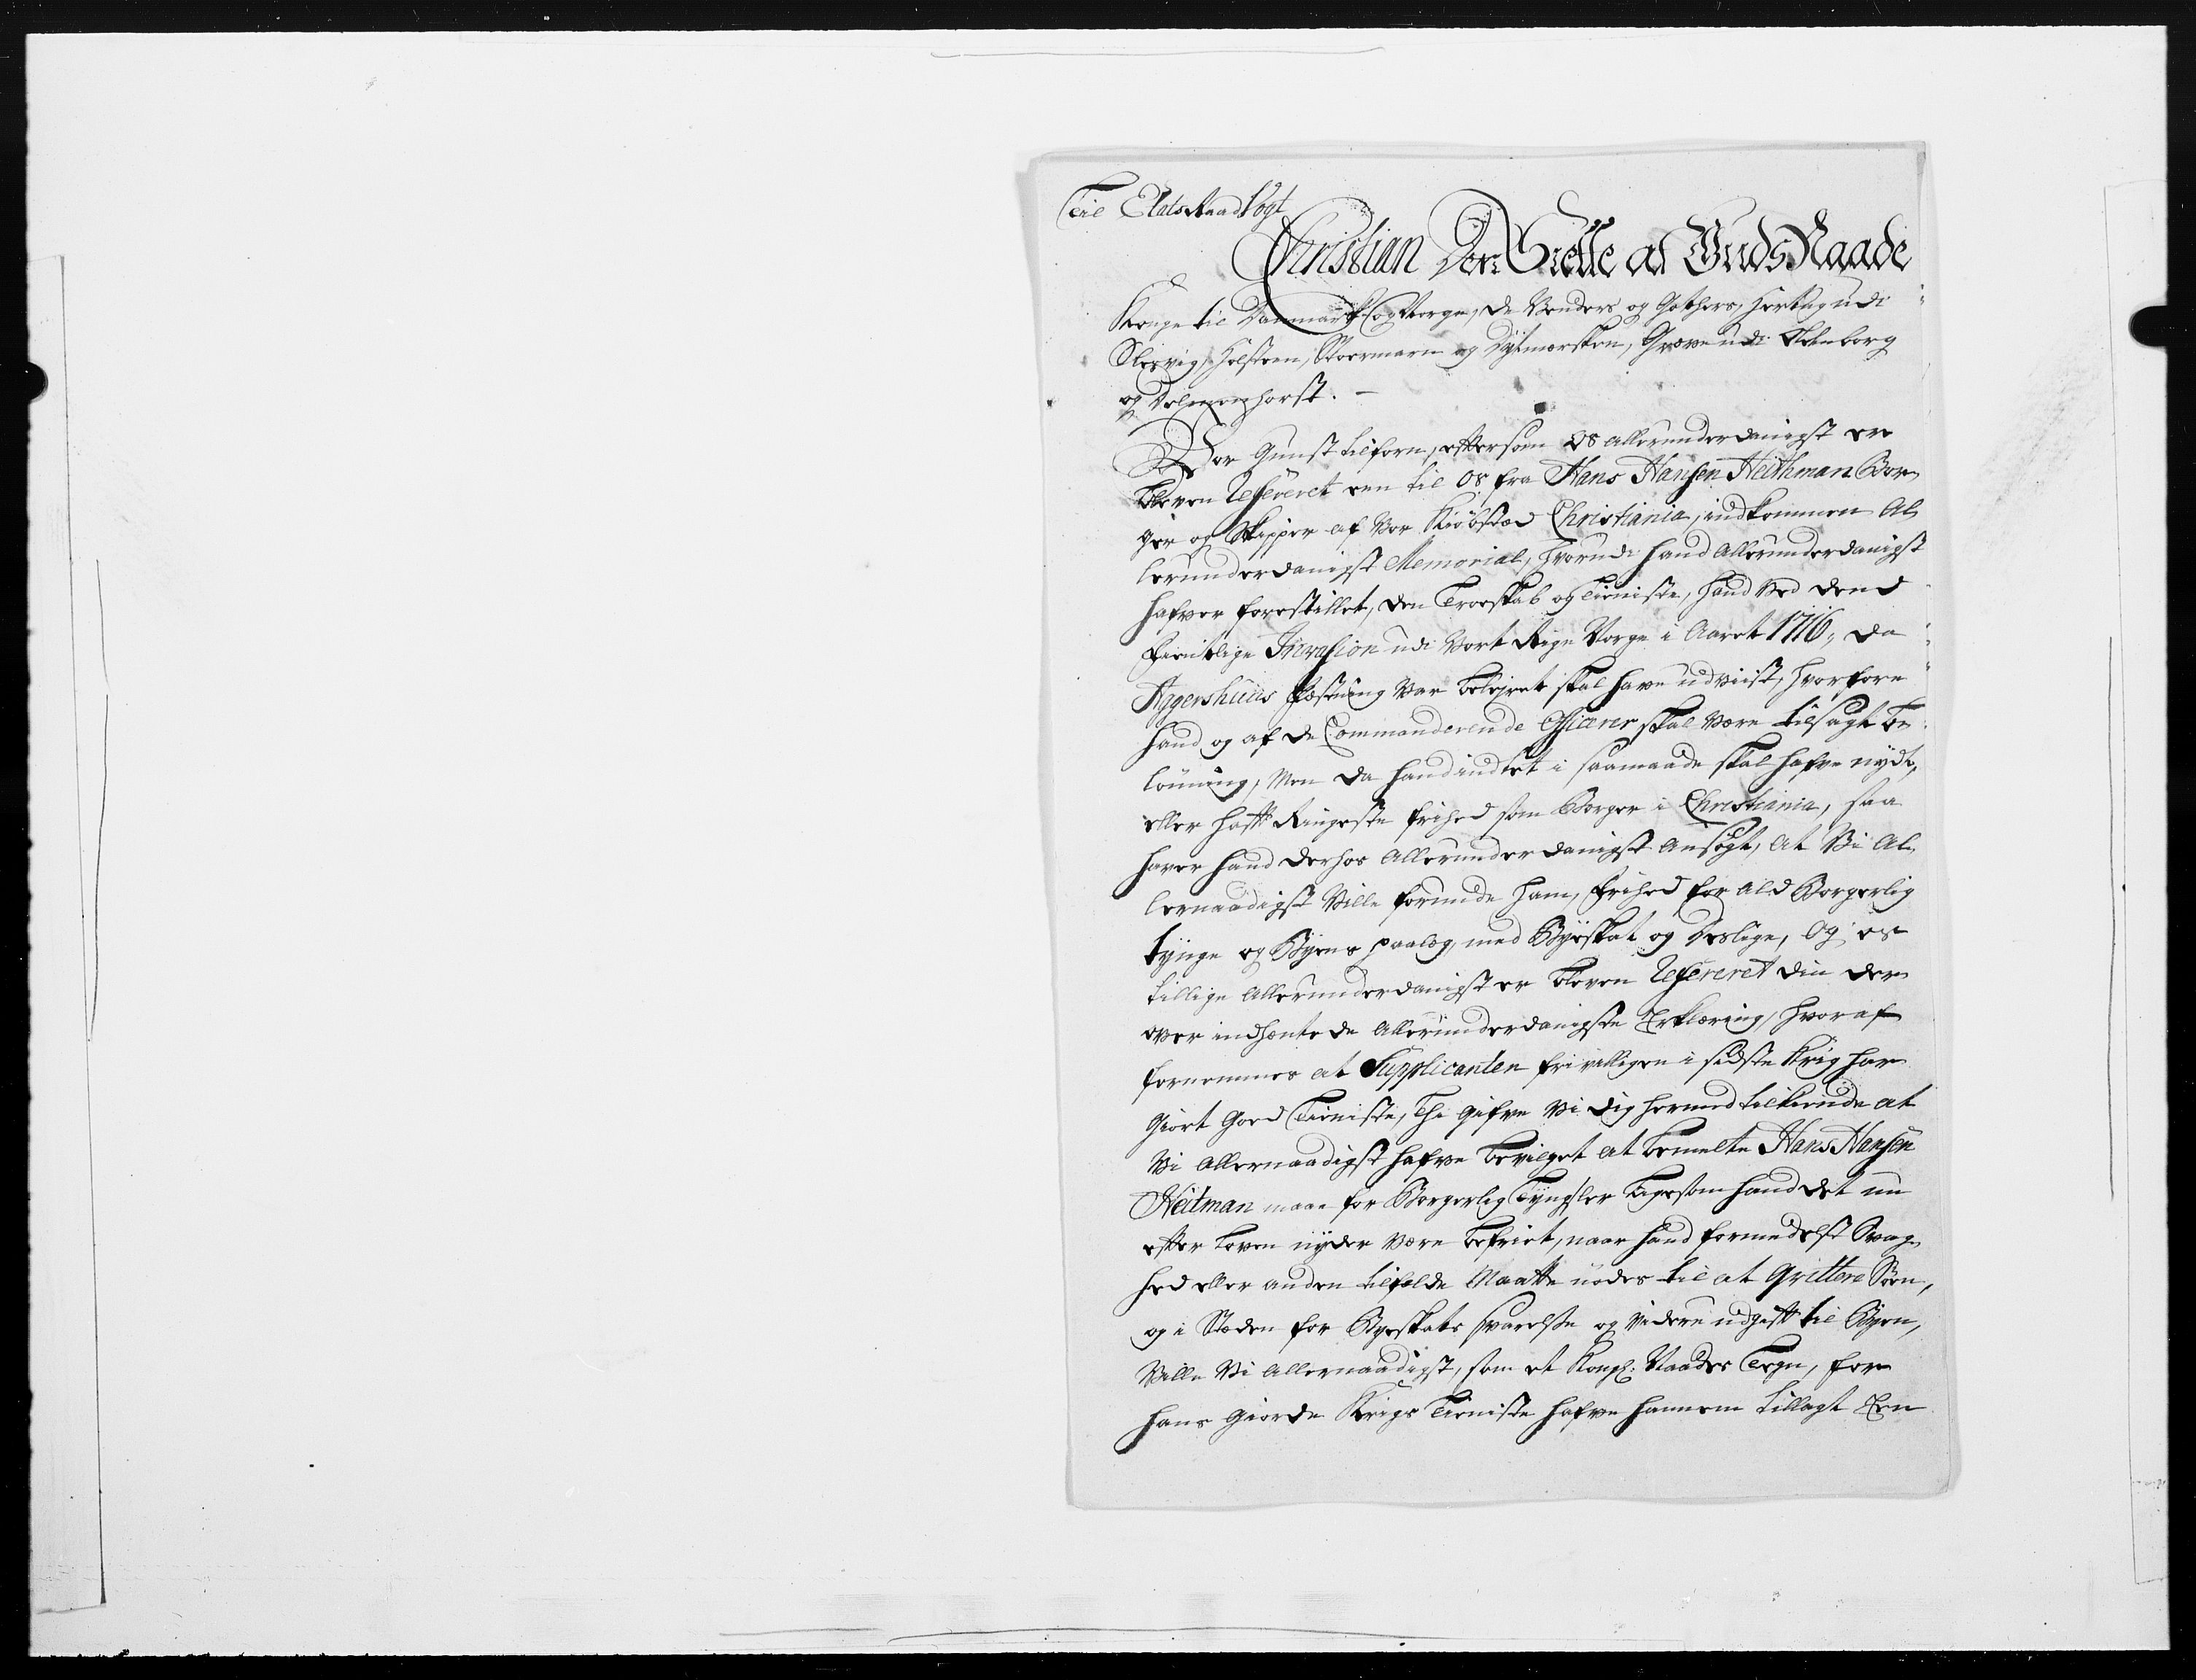 Til EtatsRaad Vogt
Christian Den Siette af Guds Naade
Konge til Danmark og Norge, de Venders og Gothers, Hertug udi
Slesvig, Holsteen, Stoermarn og Dytmersken, Greve udi Oldenborg
og Delmenhorst. -
Vor Gunst tilforn, eftersom Os allerunderdanigst er
bleven Refereret een til Os fra Hans Hansen Heithman Bor¬
ger og Skipper af Vor Kiøbsted Christiania, indkommen Al¬
lerunderdanigst Memorial, hvorudi hand allerunderdanigst
hafver forestillet, den Troeskab og Tieniste, hand ved dend
Fientlige Invasion udi Vort Rige Norge i Aaret 1716, da
Aggershuus Fæstning var beleyret skal have udviist, hvorfore
hand og af de Commanderende Officerer skal være tilsagt be¬
lønning, Men da hand indtet i saamaade skal hafve nydt,
eller hafft Ringeste frihed som Borger i Christiania, saa
haver hand derhos Allerunderdanigst ansøgt, at Vi Al¬
lernaadigst Ville forunde ham, frihed for ald Borgerlig
tynge og Byens paaleg, med Byeskat og deslige, Og os
tillige Allerunderdanigst er bleven Refereret din der¬
over indhentede Allerunderdanigste Erklæring, hvoraf
fornemmes at Supplicanten frivilligen i sidste Krig har
Giort Goed Tieniste, Thi Gifve Vi dig hermed tilkiende at
Vi Allernaadigst hafve bevilget at bemelte Hans Hansen
Heitman maae for Borgerlig Tyngsler ligesom hand det nu
efter Loven nyder være befriet, naar hand formedelst Svag¬
hed eller anden tilfælde Maatte nødes til at Qvittere Søen,
og i Steden for Byeskats svarelse og videre udgifft til Byen,
Ville Vi Allernaadigst, som et Kongl: Naades Tegn, for
hans Giorde Krigs Tieniste hafve hannem tillagt Een